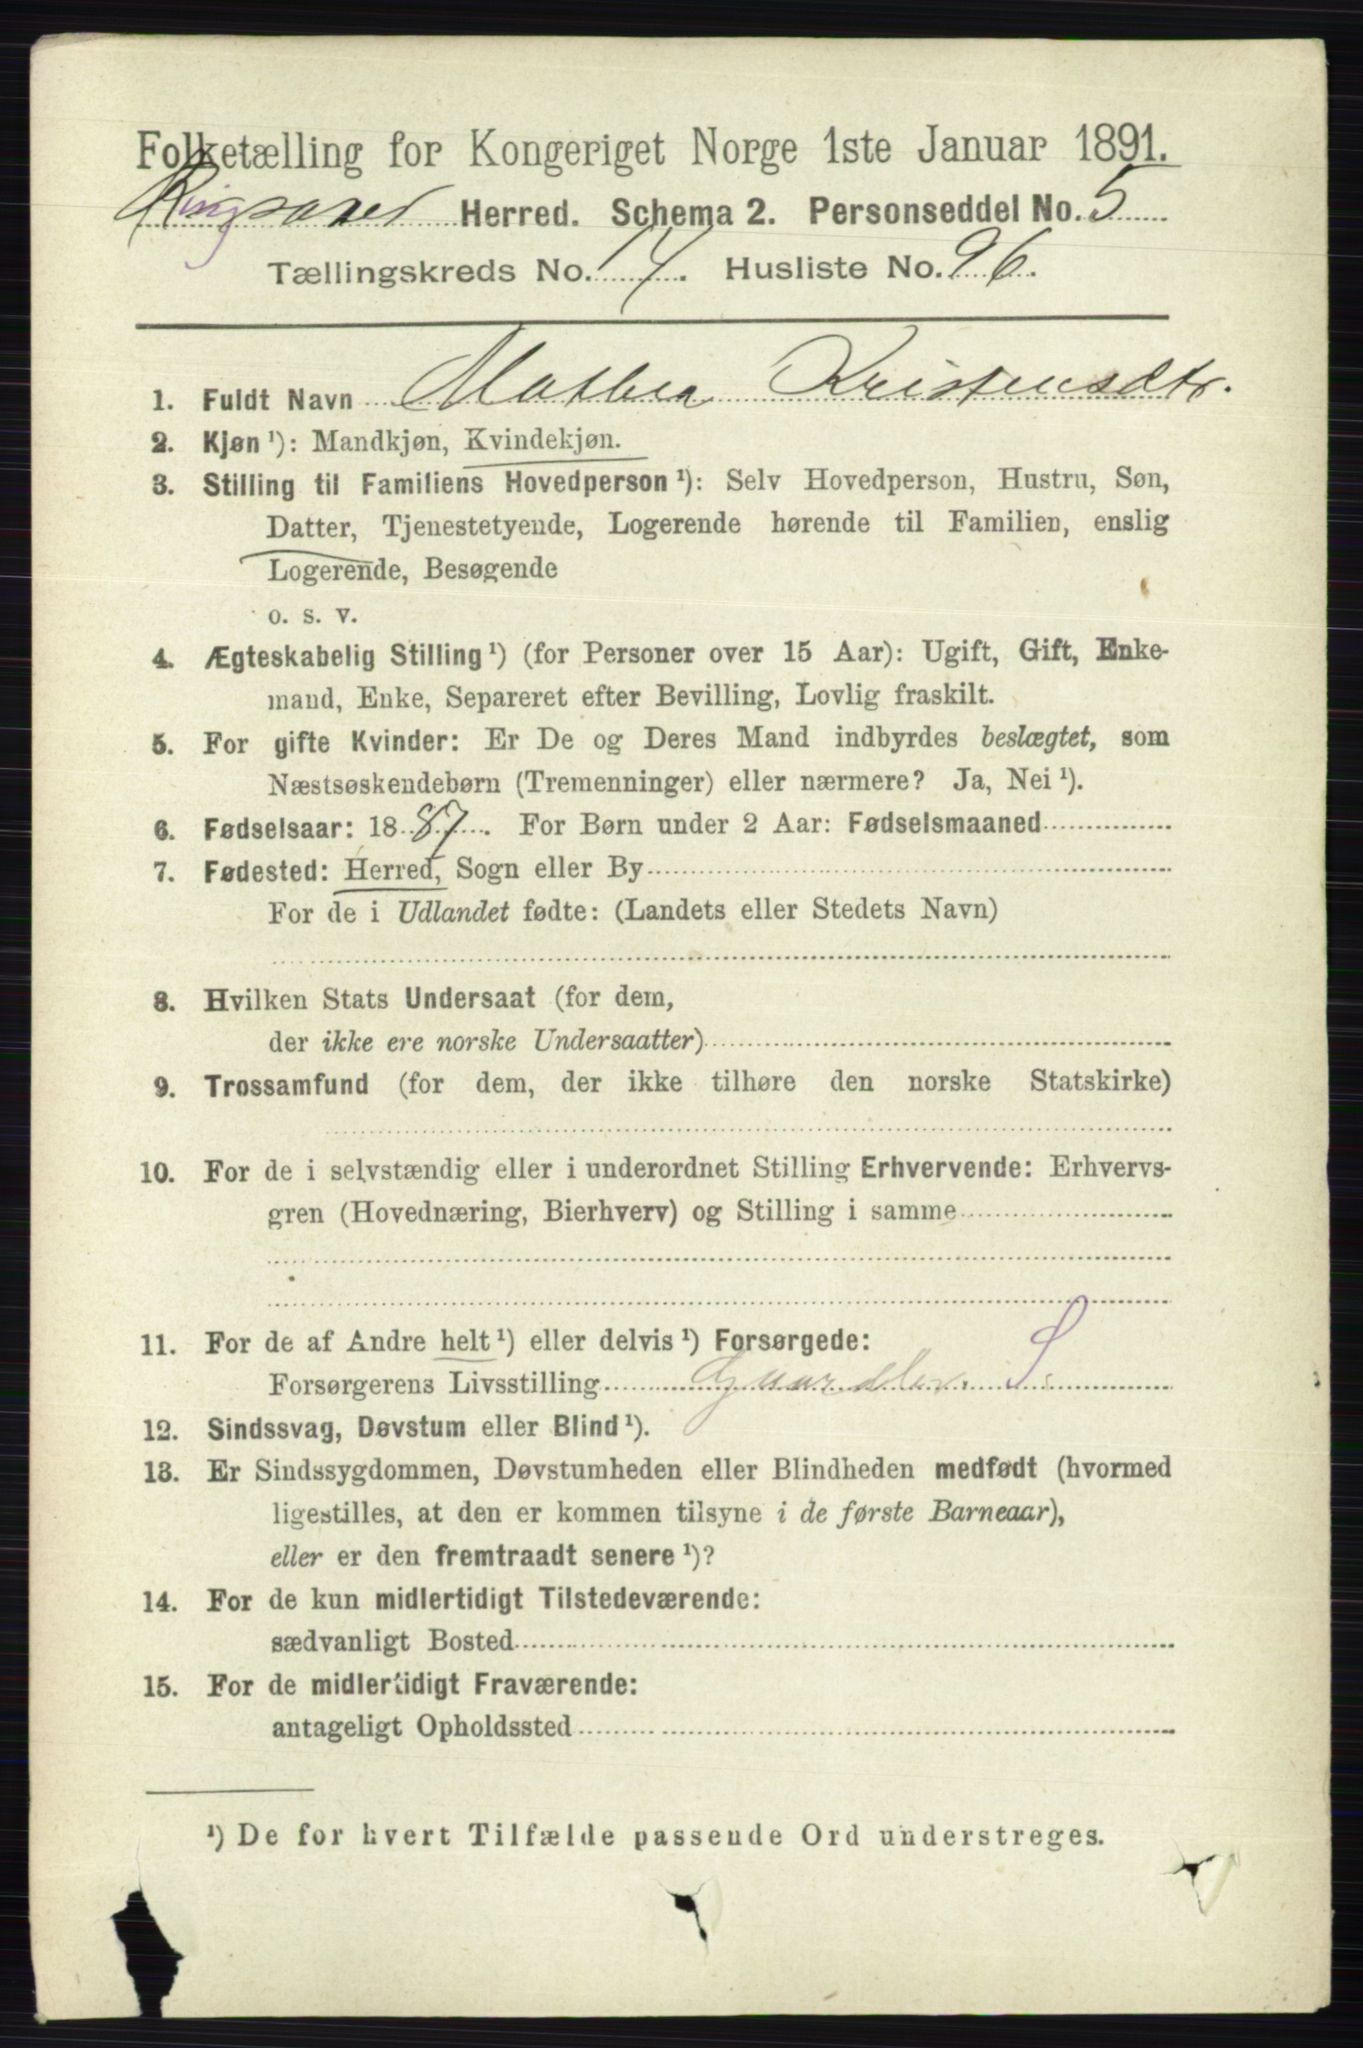 Folketælling for Kongeriget Norge 1ste Januar 1891.
Ringsaker Herred. Schema 2. Personseddel No. 5
Tællingskreds No. 14. Husliste No. 96.
1. Fuldt Navn Mathea Kristensdtr.
2. Kjøn ¹): Mandkjøn, Kvindekjøn.
3. Stilling til Familiens Hovedperson ¹): Selv Hovedperson, Hustru, Søn,
Datter, Tjenestetyende, Logerende hørende til Familien, enslig
Logerende, Besøgende
o. s. v.
4. Ægteskabelig Stilling ¹) (for Personer over 15 Aar): Ugift, Gift, Enke-
mand, Enke, Separeret efter Bevilling, Lovlig fraskilt.
5. For gifte Kvinder: Er De og Deres Mand indbyrdes beslægtet, som
Næstsøskendebørn (Tremenninger) eller nærmere? Ja, Nei ¹).
6. Fødselsaar: 1887. For Børn under 2 Aar: Fødselsmaaned
7. Fødested: Herred, Sogn eller By
For de i Udlandet fødte: (Landets eller Stedets Navn)
8. Hvilken Stats Undersaat (for dem,
der ikke ere norske Undersaatter)
9. Trossamfund (for dem, der ikke tilhøre den norske Statskirke)
10. For de i selvstændig eller i underordnet Stilling Erhvervende: Erhvervs-
gren (Hovednæring, Bierhverv) og Stilling i samme
11. For de af Andre helt ¹) eller delvis ¹) Forsørgede:
Forsørgerens Livsstilling S.
12. Sindssvag, Døvstum eller Blind ¹).
13. Er Sindssygdommen, Døvstumheden eller Blindheden medfødt (hvormed
ligestilles, at den er kommen tilsyne i de første Barneaar),
eller er den fremtraadt senere ¹)?
14. For de kun midlertidigt Tilstedeværende:
sædvanligt Bosted
15. For de midlertidigt Fraværende:
antageligt Opholdssted
¹) De for hvert Tilfælde passende Ord understreges.